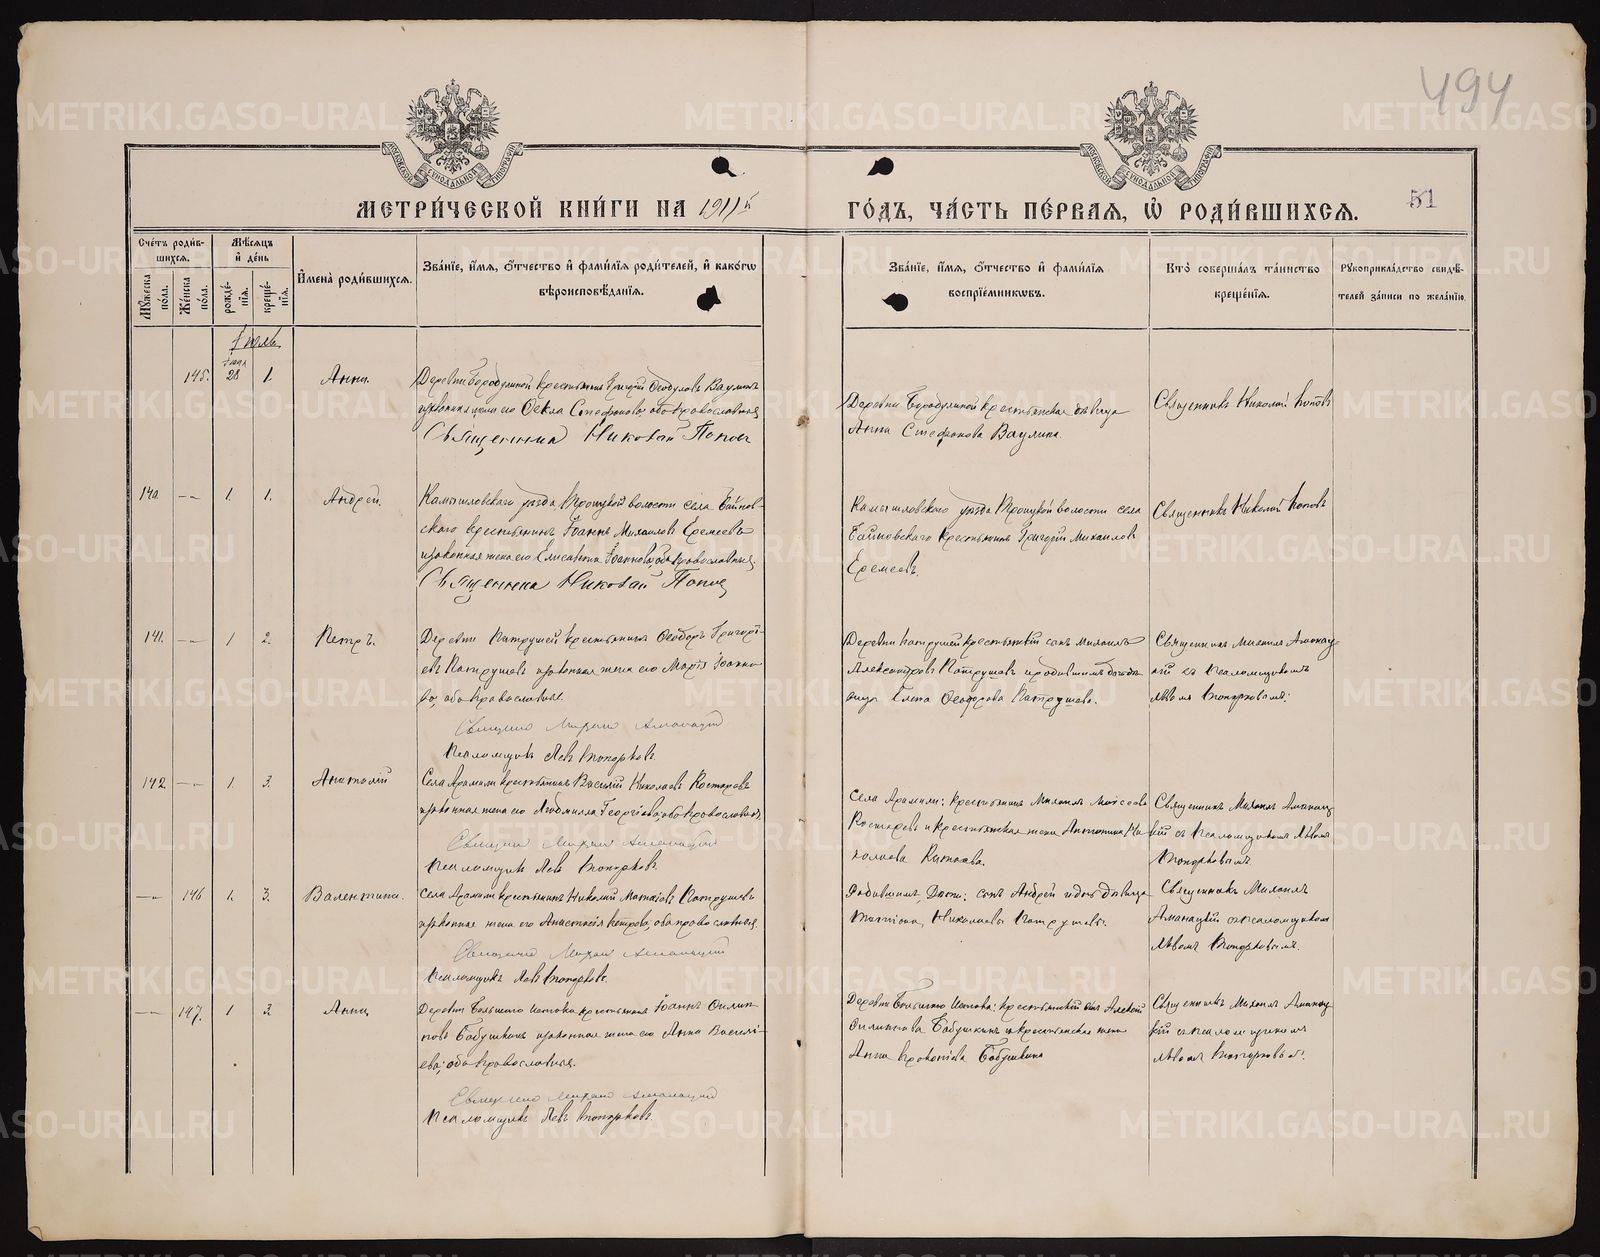 494
51
МОСКОВСКОЙ СѴНОДАЛЬНОЙ ТИПОГРАФІИ
МОСКОВСКОЙ СѴНОДАЛЬНОЙ ТИПОГРАФІИ
МЕТРИ́ЧЕСКОЙ КНИ́ГИ НА 1911й
ГО́ДЪ, ЧА́СТЬ ПЕ́РВАЯ, Ѡ҆ РОДИ́ВШИХСЯ.
Сче́тъ роди́вшихся.
Му́жеска по́ла.
Же́нска по́ла.
Мѣ́сяцъ и҆ де́нь
рожде́нїя.
креще́нїя.
И҆мена̀ роди́вшихся.
Зва́нїе, и҆́мя, ѻ҆́тчество и҆ фами́лїя роди́телей, и҆ како́гѡ
вѣроисповѣ́данїя.
Зва́нїе, и҆́мя, ѻ҆́тчество и҆ фами́лїя
воспрїе́мниковъ.
Кто̀ соверша́лъ та́инство
креще́нїя.
Рꙋкоприкла́дство свидѣ́-
телей за́писи по жела́нїю.
Іюль
145. Іюня 28 1. Анна.
Деревни Бородулиной крестьянинъ Григорій Ѳеодуловъ Ваулинъ
и законная жена его Ѳекла Стефанова, оба православные
Священникъ Николай Поповъ
Деревни Бородулиной крестьянская дѣвица
Анна Стефанова Ваулина.
Священникъ Николай Поповъ
140. — 1. 1. Андрей.
Камышловскаго уѣзда, Троицкой волости села Байнов-
скаго крестьянинъ Іоаннъ Михаиловъ Еремеевъ
и законная жена его Елисавета Іоаннова, оба православные.
Священникъ Николай Поповъ
Камышловскаго уѣзда Троицкой волости села
Байновскаго крестьянинъ Григорій Михаиловъ
Еремеевъ.
Священникъ Николай Поповъ
141. — 1 2. Петръ.
Деревни Патрушей крестьянинъ Ѳеодоръ Григорі-
евъ Патрушевъ и законная жена его Марія Іоанно-
ва, оба православные.
Священникъ Михаилъ Аманацкій
Псаломщикъ Левъ Топорковъ.
Деревни Патрушей крестьянскій сынъ Михаилъ
Александровъ Патрушевъ и родившимъ дѣ-
вица Елена Ѳеодорова Патрушева.
Священникъ Михаилъ Аманац-
кій съ псаломщикомъ
Львомъ Топорковымъ.
142. — 1. 3. Анатолій
Села Арамили крестьянинъ Василій Николаевъ Костаревъ
и законная жена его Людмилла Георгіева, оба православные.
Священникъ Михаилъ Аманацкій
Псаломщикъ Левъ Топорковъ.
Села Арамили: крестьянинъ Михаилъ Моисеевъ
Костаревъ и крестьянская жена Антонина Ни-
колаева
Священникъ Михаилъ Аманац-
кій съ псаломщикомъ Львомъ
Топорковымъ
— 146 1. 3. Валентина.
Села Арамили крестьянинъ Николай Матѳіевъ Патрушевъ
и законная жена его Анастасія Петрова, оба православные.
Священникъ Михаилъ Аманацкій
Псаломщикъ Левъ Топорковъ.
Родившимъ дѣти: сынъ Андрей и дочь дѣвица
Николаевы Патрушевы.
Священникъ Михаилъ
Аманацкій съ псаломщикомъ
Львомъ Топорковымъ.
— 147. 1 3. Анна
Деревни Большого Истока крестьянинъ Іоаннъ Филип-
повъ Бабушкинъ и законная жена его Анна Василі-
ева, оба православные.
Священникъ Михаилъ Аманацкій
Псаломщикъ Левъ Топорковъ.
Деревни Большого Истока: крестьянскій сынъ Алексій
Филипповъ Бабушкинъ и крестьянская жена
Анна Прокопіева Бабушкина
Священникъ Михаилъ Аманац-
кій съ псаломщикомъ
Львомъ Топорковымъ.
METRIKI.GASO-URAL.RU